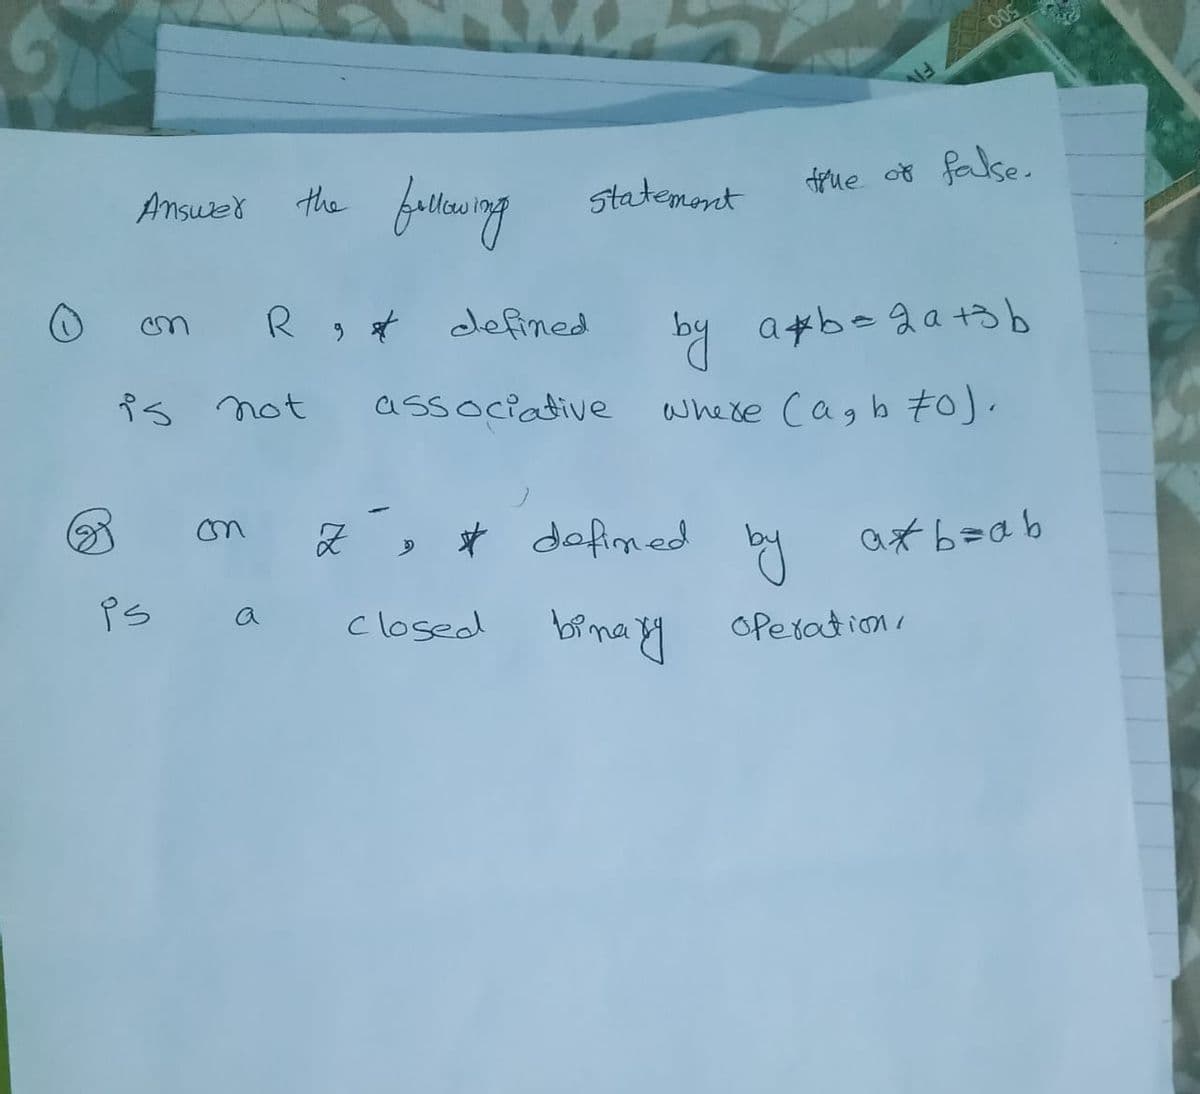 Answer the following statement true or false.
① on R, * defined by a*b=2a+3b
is not associative where (a, b ≠0).
② on Z⁻, * defined by a*b=ab
is a closed binary operation.
500
FIV